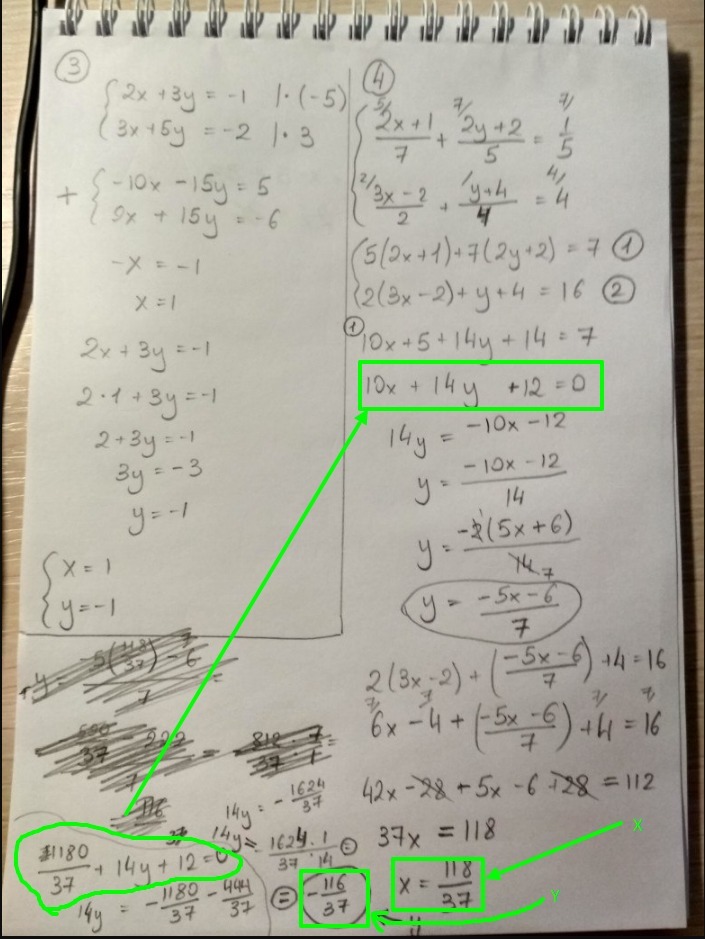 3
2x + 3y = -1 | · (-5)
3x + 5y = -2 | · 3
+ -10x - 15y = 5
9x + 15y = -6
-x = -1
x = 1
2x + 3y = -1
2 · 1 + 3y = -1
2 + 3y = -1
3y = -3
y = -1
x = 1
y = -1
4
5/ (2x+1)/7 + 7/ (2y+2)/5 = 7/ 1/5
2/ (3x-2)/2 + 1/ (y+4)/4 = 4/ 4
5(2x+1) + 7(2y+2) = 7 1
2(3x-2) + y + 4 = 16 2
1 10x + 5 + 14y + 14 = 7
10x + 14y + 12 = 0
14y = -10x - 12
y = (-10x - 12)/14
y = -2(5x + 6)/14 7
y = (-5x - 6)/7
2(3x - 2) + ((-5x - 6)/7) + 4 = 16
7/ 6x - 7/ 4 + ((-5x - 6)/7) + 7/ 4 = 7/ 16
42x - 28 + 5x - 6 + 28 = 112
37x = 118
x = 118/37
X
y
14y = -1624/37
1180/37 + 14y + 12 = 0
14y = -1180/37 - 444/37
14y = -1624 · 1/37 · 14 =
= -116/37
Y